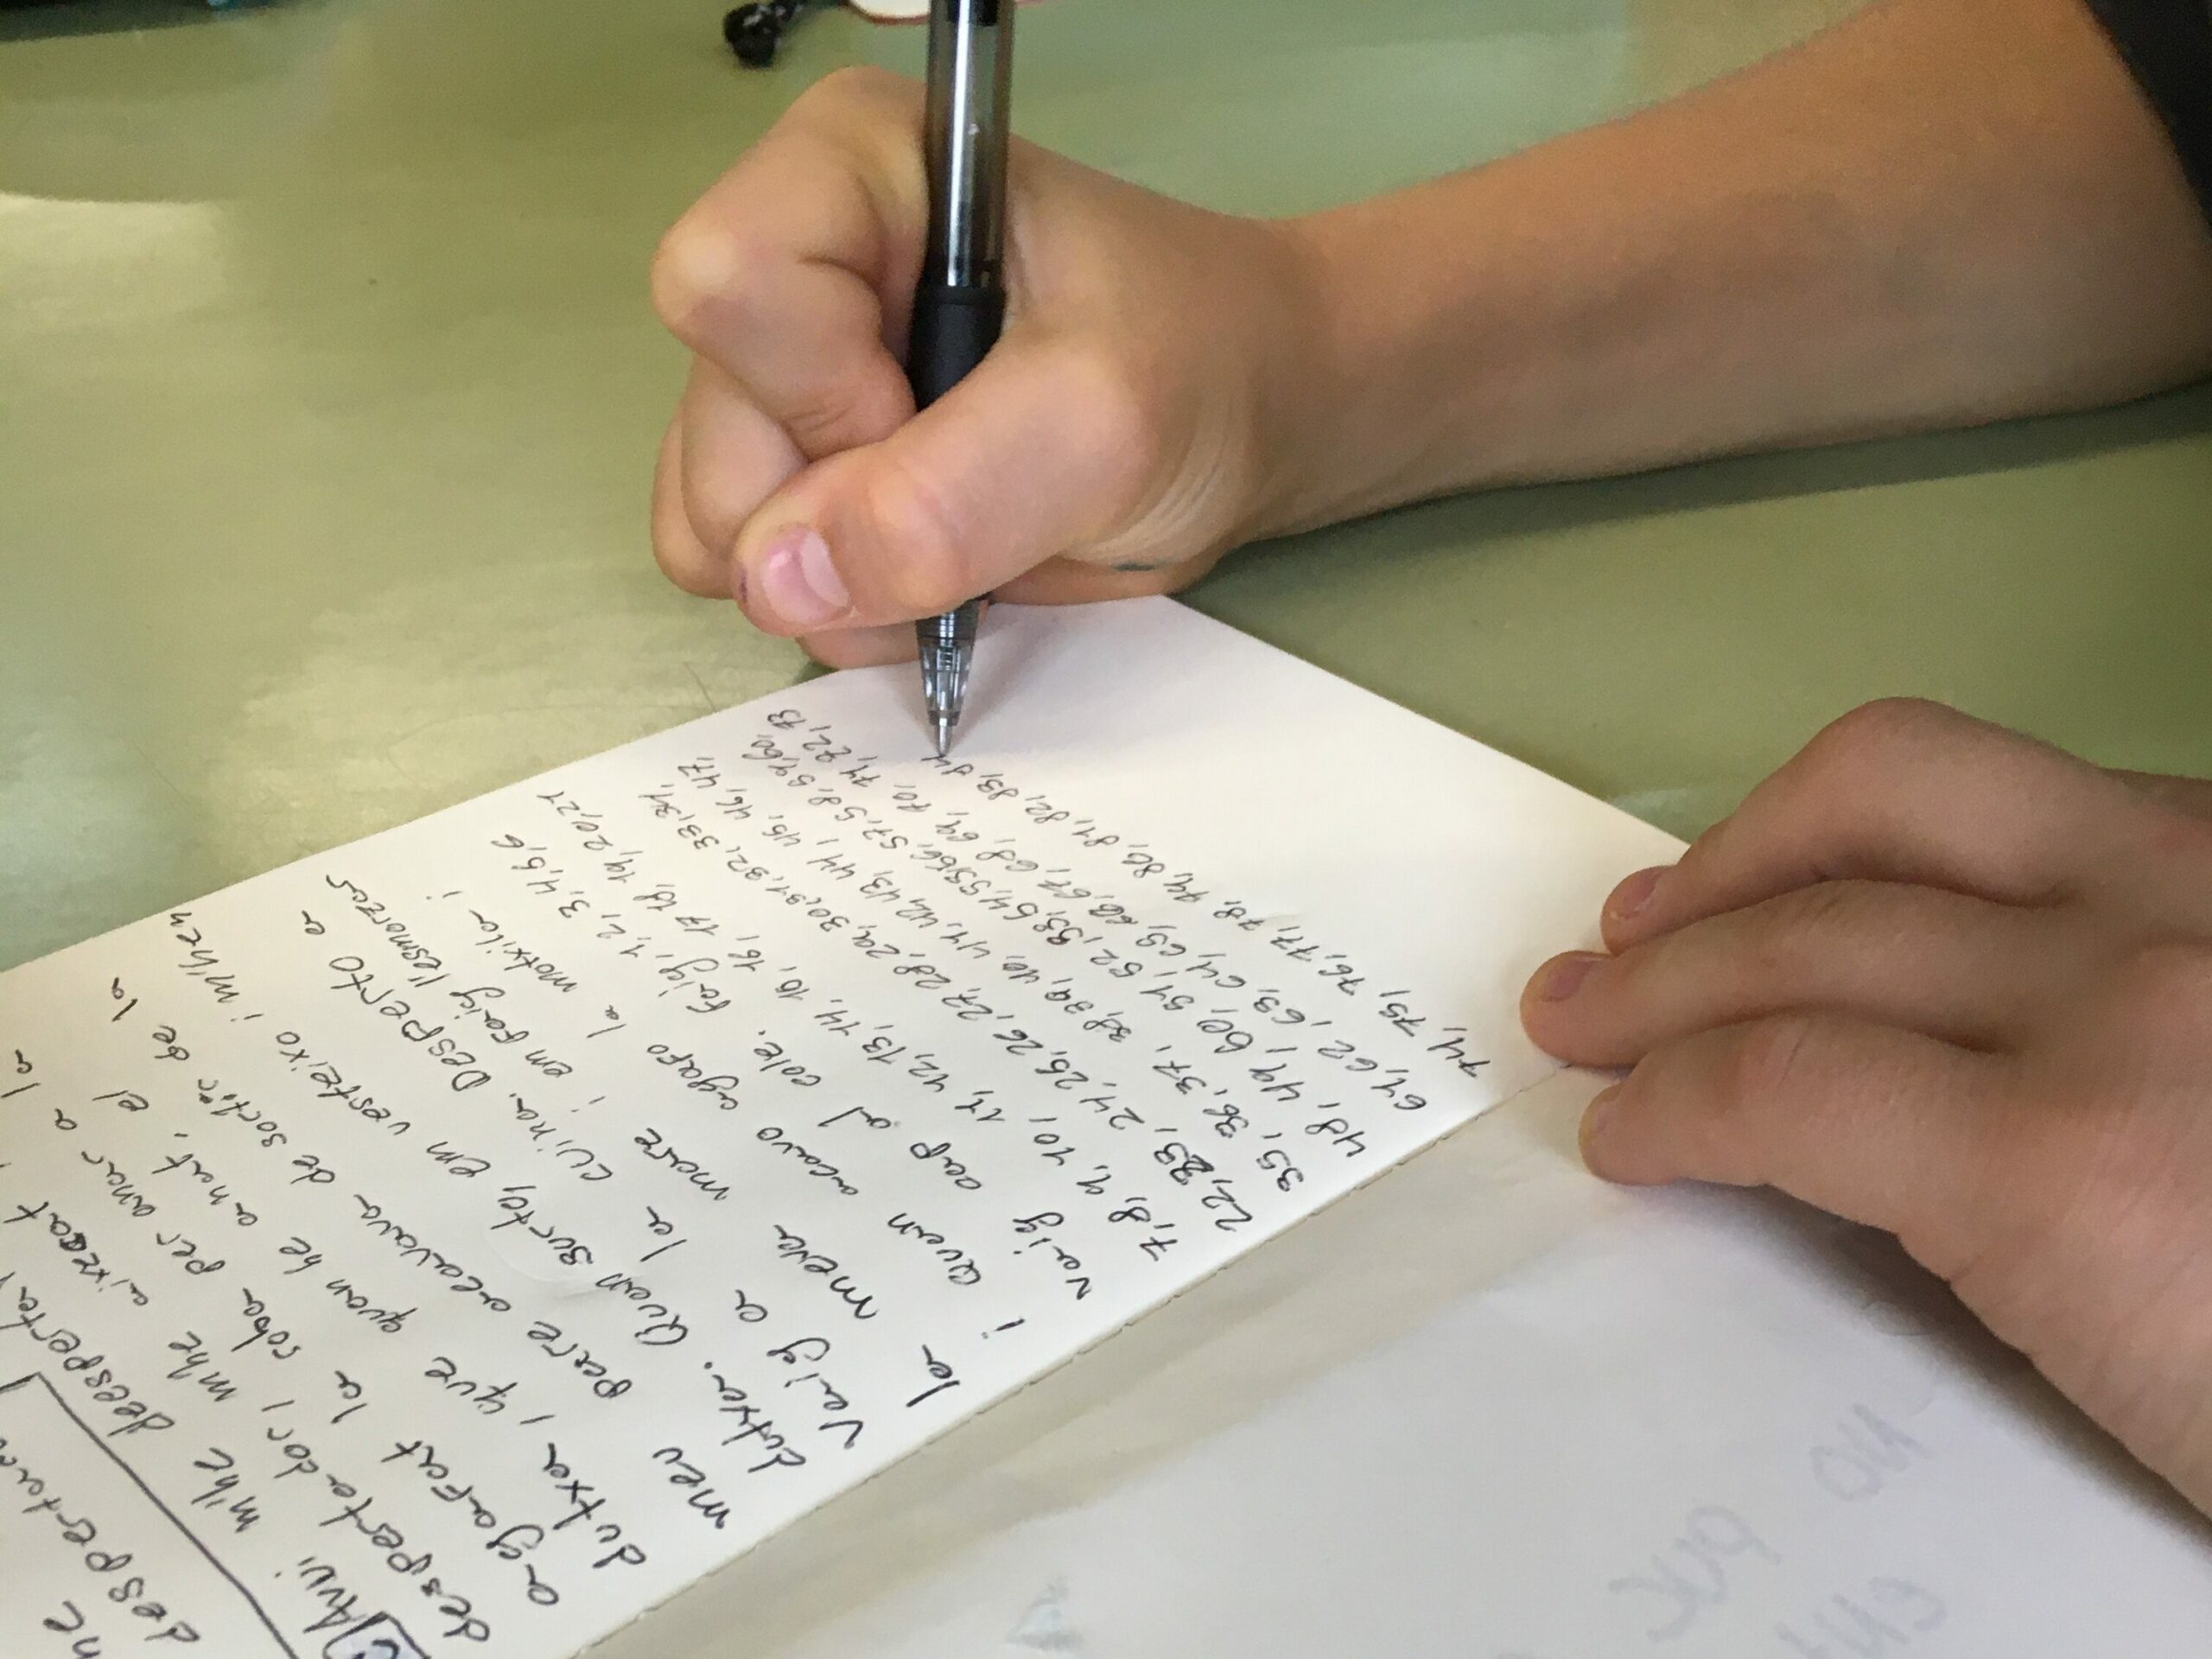 me
despertar
Avui m'he deespertat
despertador i m'he aixecat
agafat la roba per anar a la
dutxa, i que quan he anat, el
meu pare acavava de sortir de la
dutxa. Quan surto, em vesteixo i m'he
Vaig a la cuina. Desperto a
la meva mare i em faig l'esmorzar
i quan acavo agafo la motxila i
vaig cap al cole. Faig, 1, 2, 3, 4, 5, 6
7, 8, 9, 10, 11, 12, 13, 14, 15, 16, 17, 18, 19, 20, 21
22, 23, 24, 25, 26, 27, 28, 29, 30, 31, 32, 33, 34,
35, 36, 37, 38, 39, 40, 41, 42, 43, 44, 45, 46, 47,
48, 49, 50, 51, 52, 53, 54, 55, 56, 57, 58, 59, 60,
61, 62, 63, 64, 65, 66, 67, 68, 69, 70, 71, 72, 73
74, 75, 76, 77, 78, 79, 80, 81, 82, 83, 84
NO
PUC